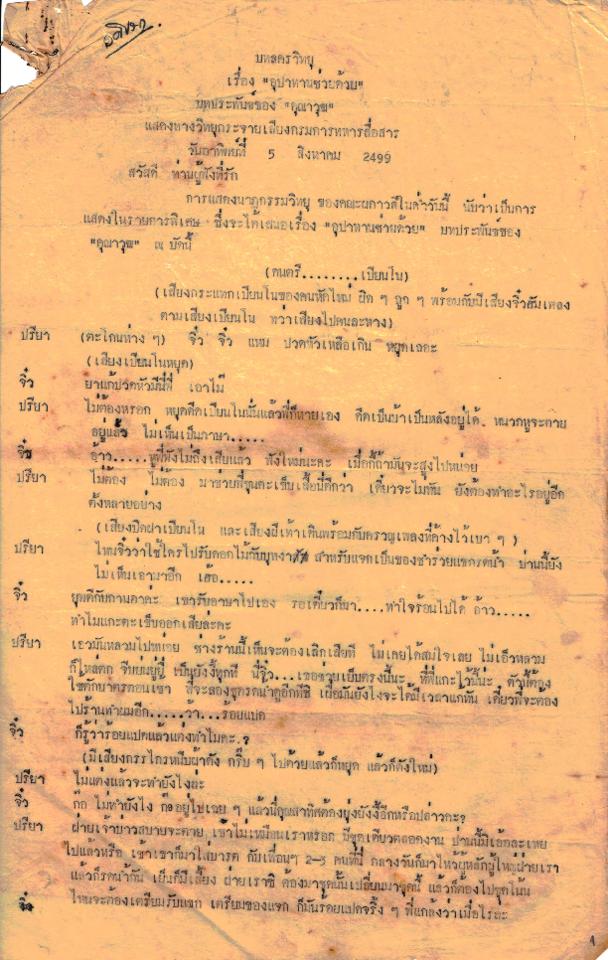 บทละครวิทยุ
เรื่อง "อุปาทานช่วยด้วย"
บทประพันธ์ของ "คุณาวุฒ"
แสดงทางวิทยุกระจายเสียงกรมการทหารสื่อสาร
วันอาทิตย์ที่ 5 สิงหาคม 2499
สวัสดี ท่านผู้ฟังที่รัก
การแสดงนาฏกรรมวิทยุ ของคณะผกาวดีในค่ำวันนี้ นับว่าเป็นการ
แสดงในรายการพิเศษ ซึ่งจะได้เสนอเรื่อง "อุปาทานช่วยด้วย" บทประพันธ์ของ
"คุณาวุฒ" ณ บัดนี้
(ดนตรี........เปียนโน)
(เสียงกระแทกเปียนโนของคนหัดใหม่ ผิด ๆ ถูก ๆ พร้อมกับมีเสียงจิ๋วฮัมเพลง
ตามเสียงเปียนโน ทว่าเสียงไปคนละทาง)
ปรียา (ตะโกนห่าง ๆ) จิ๋ว จิ๋ว แหม ปวดหัวเหลือเกิน หยุดเถอะ
(เสียงเปียนโนหยุด)
จิ๋ว ยาแก้ปวดหัวมีนี่พี่ เอาไม๊
ปรียา ไม่ต้องหรอก หยุดดีดเปียนโนนั่นแล้วพี่ก็หายเอง ดีดเป็นบ้าเป็นหลังอยู่ได้ หนวกหูจะตาย
อยู่แล้ว ไม่เห็นเป็นภาษา.....
จิ๋ว อ้าว.....หูพี่ฟังไม่ถึงเสียแล้ว ฟังใหม่นะคะ เมื่อกี้ถ้ามันจะสูงไปหน่อย
ปรียา ไม่ต้อง ไม่ต้อง มาช่วยพี่ขุนตะเข็บเสื้อนี่ดีกว่า เดี๋ยวจะไม่ทัน ยังต้องทำอะไรอยู่อีก
ตั้งหลายอย่าง
(เสียงปิดฝาเปียนโน และเสียงฝีเท้าเดินพร้อมกับครวญเพลงที่ค้างไว้เบา ๆ)
ปรียา ไหนจิ๋วว่าใช้ใครไปรับดอกไม้กับบุหงา สำหรับแจกเป็นของชำร่วยแขกรดน้ำ ป่านนี้ยัง
ไม่เห็นเอามาอีก เฮ้อ.....
จิ๋ว ยุมดีกับกานดาค่ะ เขารับอาษาไปเอง รอเดี๋ยวก็มา....ทำใจร้อนไปได้ อ้าว.....
ทำไมแกะตะเข็บออกเสียล่ะคะ
ปรียา เอวมันหลวมไปหน่อย ช่างร้านนี้เห็นจะต้องเลิกเสียที ไม่เคยได้สมใจเลย ไม่เอวหลวม
ก็ไหล่ตก จีบยนยู่ยี่ เป็นยังงี้ทุกที นี่จิ๋ว...เธอช่วยเย็บตรงนี้นะ ที่พี่แกะไว้นี่น่ะ ตัวนี้ต้อง
ใช้ตักบาตรตอนเช้า พี่จะลองชุดรดน้ำดูอีกทีซิ เผื่อมันยังไงจะได้มีเวลาแก้ทัน เดี๋ยวพี่จะต้อง
ไปร้านทำผมอีก.....ว้า...ร้อยแปด
จิ๋ว ก็รู้ว่าร้อยแปดแล้วแต่งทำไมคะ.?
(มีเสียงกรรไกรหนีบผ้าดัง กริ๊บ ๆ ไปด้วยแล้วก็หยุด แล้วก็ดังใหม่)
ปรียา ไม่แต่งแล้วจะทำยังไงล่ะ
จิ๋ว ก๊อ ไม่ทำยังไง ก๊ออยู่ไปเฉย ๆ แล้วนี่คุณสาทิศต้องยุ่งยังงี้อีกหรือปล่าวคะ?
ปรียา ฝ่ายเจ้าบ่าวสบายจะตาย เขาไม่เหมือนเราหรอก มีชุดเดียวตลอดงาน ป่านนี้มิเอ้อละเหย
ไปแล้วหรือ เช้าเขาก็มาใส่บาตร กับเพื่อนๆ 2-3 คนที่นี่ กลางวันก็มาไหว้ผู้หลักผู้ใหญ่ฝ่ายเรา
แล้วก็รดน้ำกัน เย็นก็มีเลี้ยง ฝ่ายเราซิ ต้องมาชุดนั้นเปลี่ยนมาชุดนี้ แล้วก็ต้องไปชุดโน้น
ไหนจะต้องเตรียมรับแขก เตรียมของแจก ก็มันร้อยแปดจริ๊ง ๆ พี่แกล้งว่าเมื่อไรละ
จิ๋ว
1